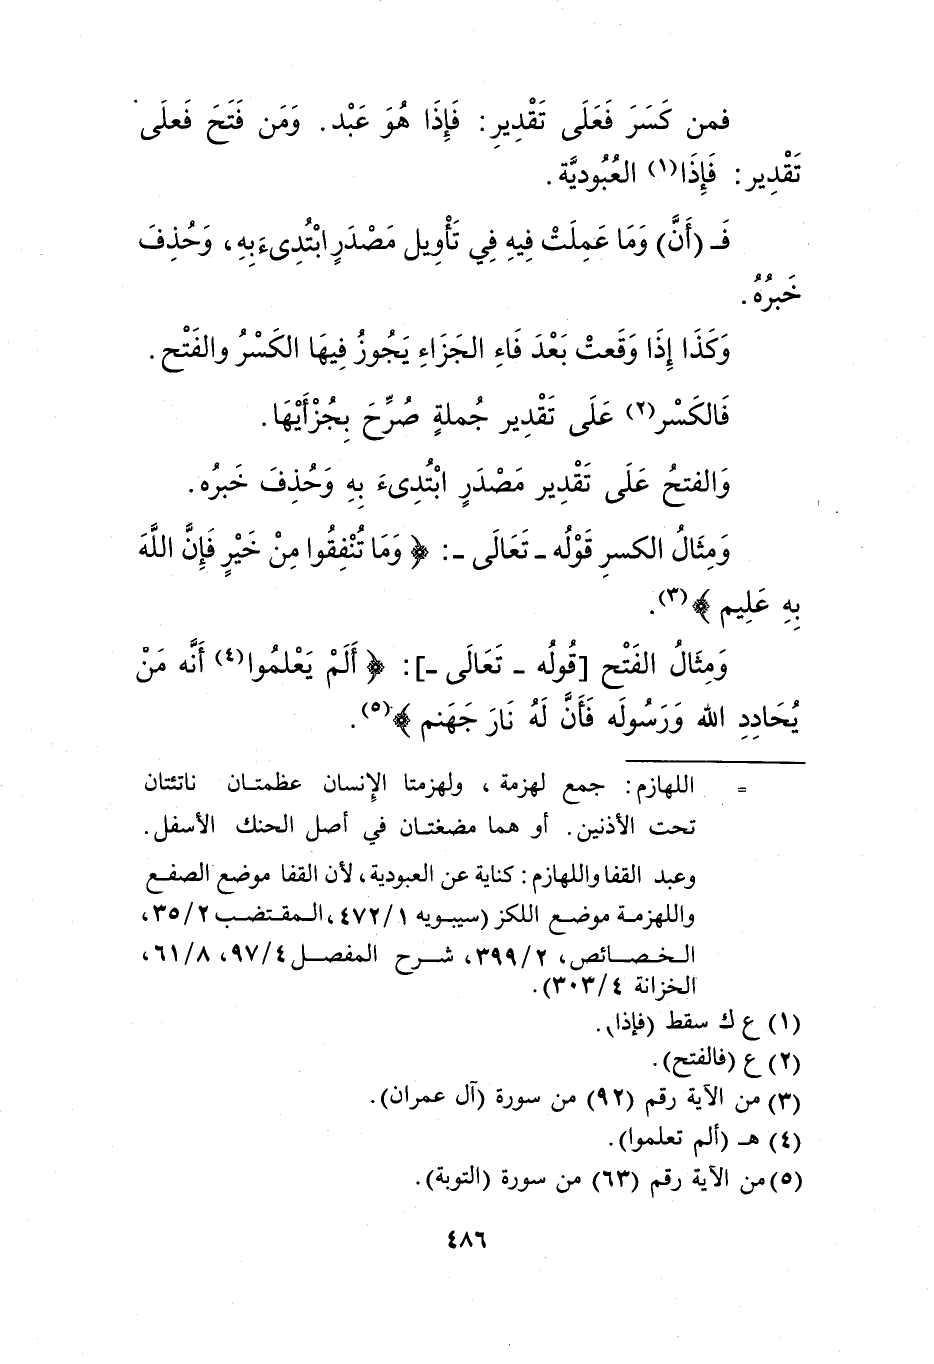 فمن كَسَرَ فَعَلَى تَقْدِيرِ: فَإِذَا هُوَ عَبْد. وَمَن فَتَحَ فَعلَى
تَقْدِير: فَإِذَا(١) العُبُوديَّة.
فَـ (أَنَّ) وَمَا عَمِلَتْ فِيهِ فِي تَأْوِيل مَصْدَرٍ ابْتُدِىءَ بِهِ، وَحُذِفَ
خَبرُهُ.
وَكَذَا إِذَا وَقَعتْ بَعْدَ فَاءِ الجَزَاءِ يَجُوزُ فِيهَا الكَسْرُ والفَتْح.
فَالكَسْر(٢) عَلَى تَقْدِير جُملةٍ صُرِّحَ بِجُزْأَيْهَا.
وَالفتحُ عَلَى تَقْدِير مَصْدَرٍ ابْتُدِىءَ بِهِ وَحُذِفَ خَبرُه.
وَمِثَالُ الكسرِ قَوْلُه ـ تَعَالَى ـ: ﴿ وَمَا تُنْفِقُوا مِنْ خَيْرٍ فَإِنَّ اللَّهَ
بِهِ عَلِيم ﴾(٣).
وَمِثَالُ الفَتْح [قُولُه ـ تَعَالَى ـ]: ﴿ أَلَمْ يَعْلمُوا(٤) أَنَّه مَنْ
يُحَادِدِ الله وَرَسُولَه فَأَنَّ لَهُ نَارَ جَهَنم ﴾(٥).
= اللهازم: جمع لهزمة، ولهزمتا الإِنسان عظمتـان ناتئتان
تحت الأذنين. أو هما مضغتـان في أصل الحنك الأسفل.
وعبد القفا واللهازم: كناية عن العبودية، لأن القفا موضع الصفـع
واللهزمـة موضـع اللكز (سيبـويه ١/ ٤٧٢، المقتضب ٢/ ٣٥،
الخصـائص، ٢/ ٣٩٩، شـرح المفصـل ٤/ ٩٧، ٨/ ٦١،
الخزانة ٤/ ٣٠٣).
(١) ع ك سقط (فإذا).
(٢) ع (فالفتح).
(٣) من الآية رقم (٩٢) من سورة (آل عمران).
(٤) هـ (ألم تعلموا).
(٥) من الآية رقم (٦٣) من سورة (التوبة).
٤٨٦